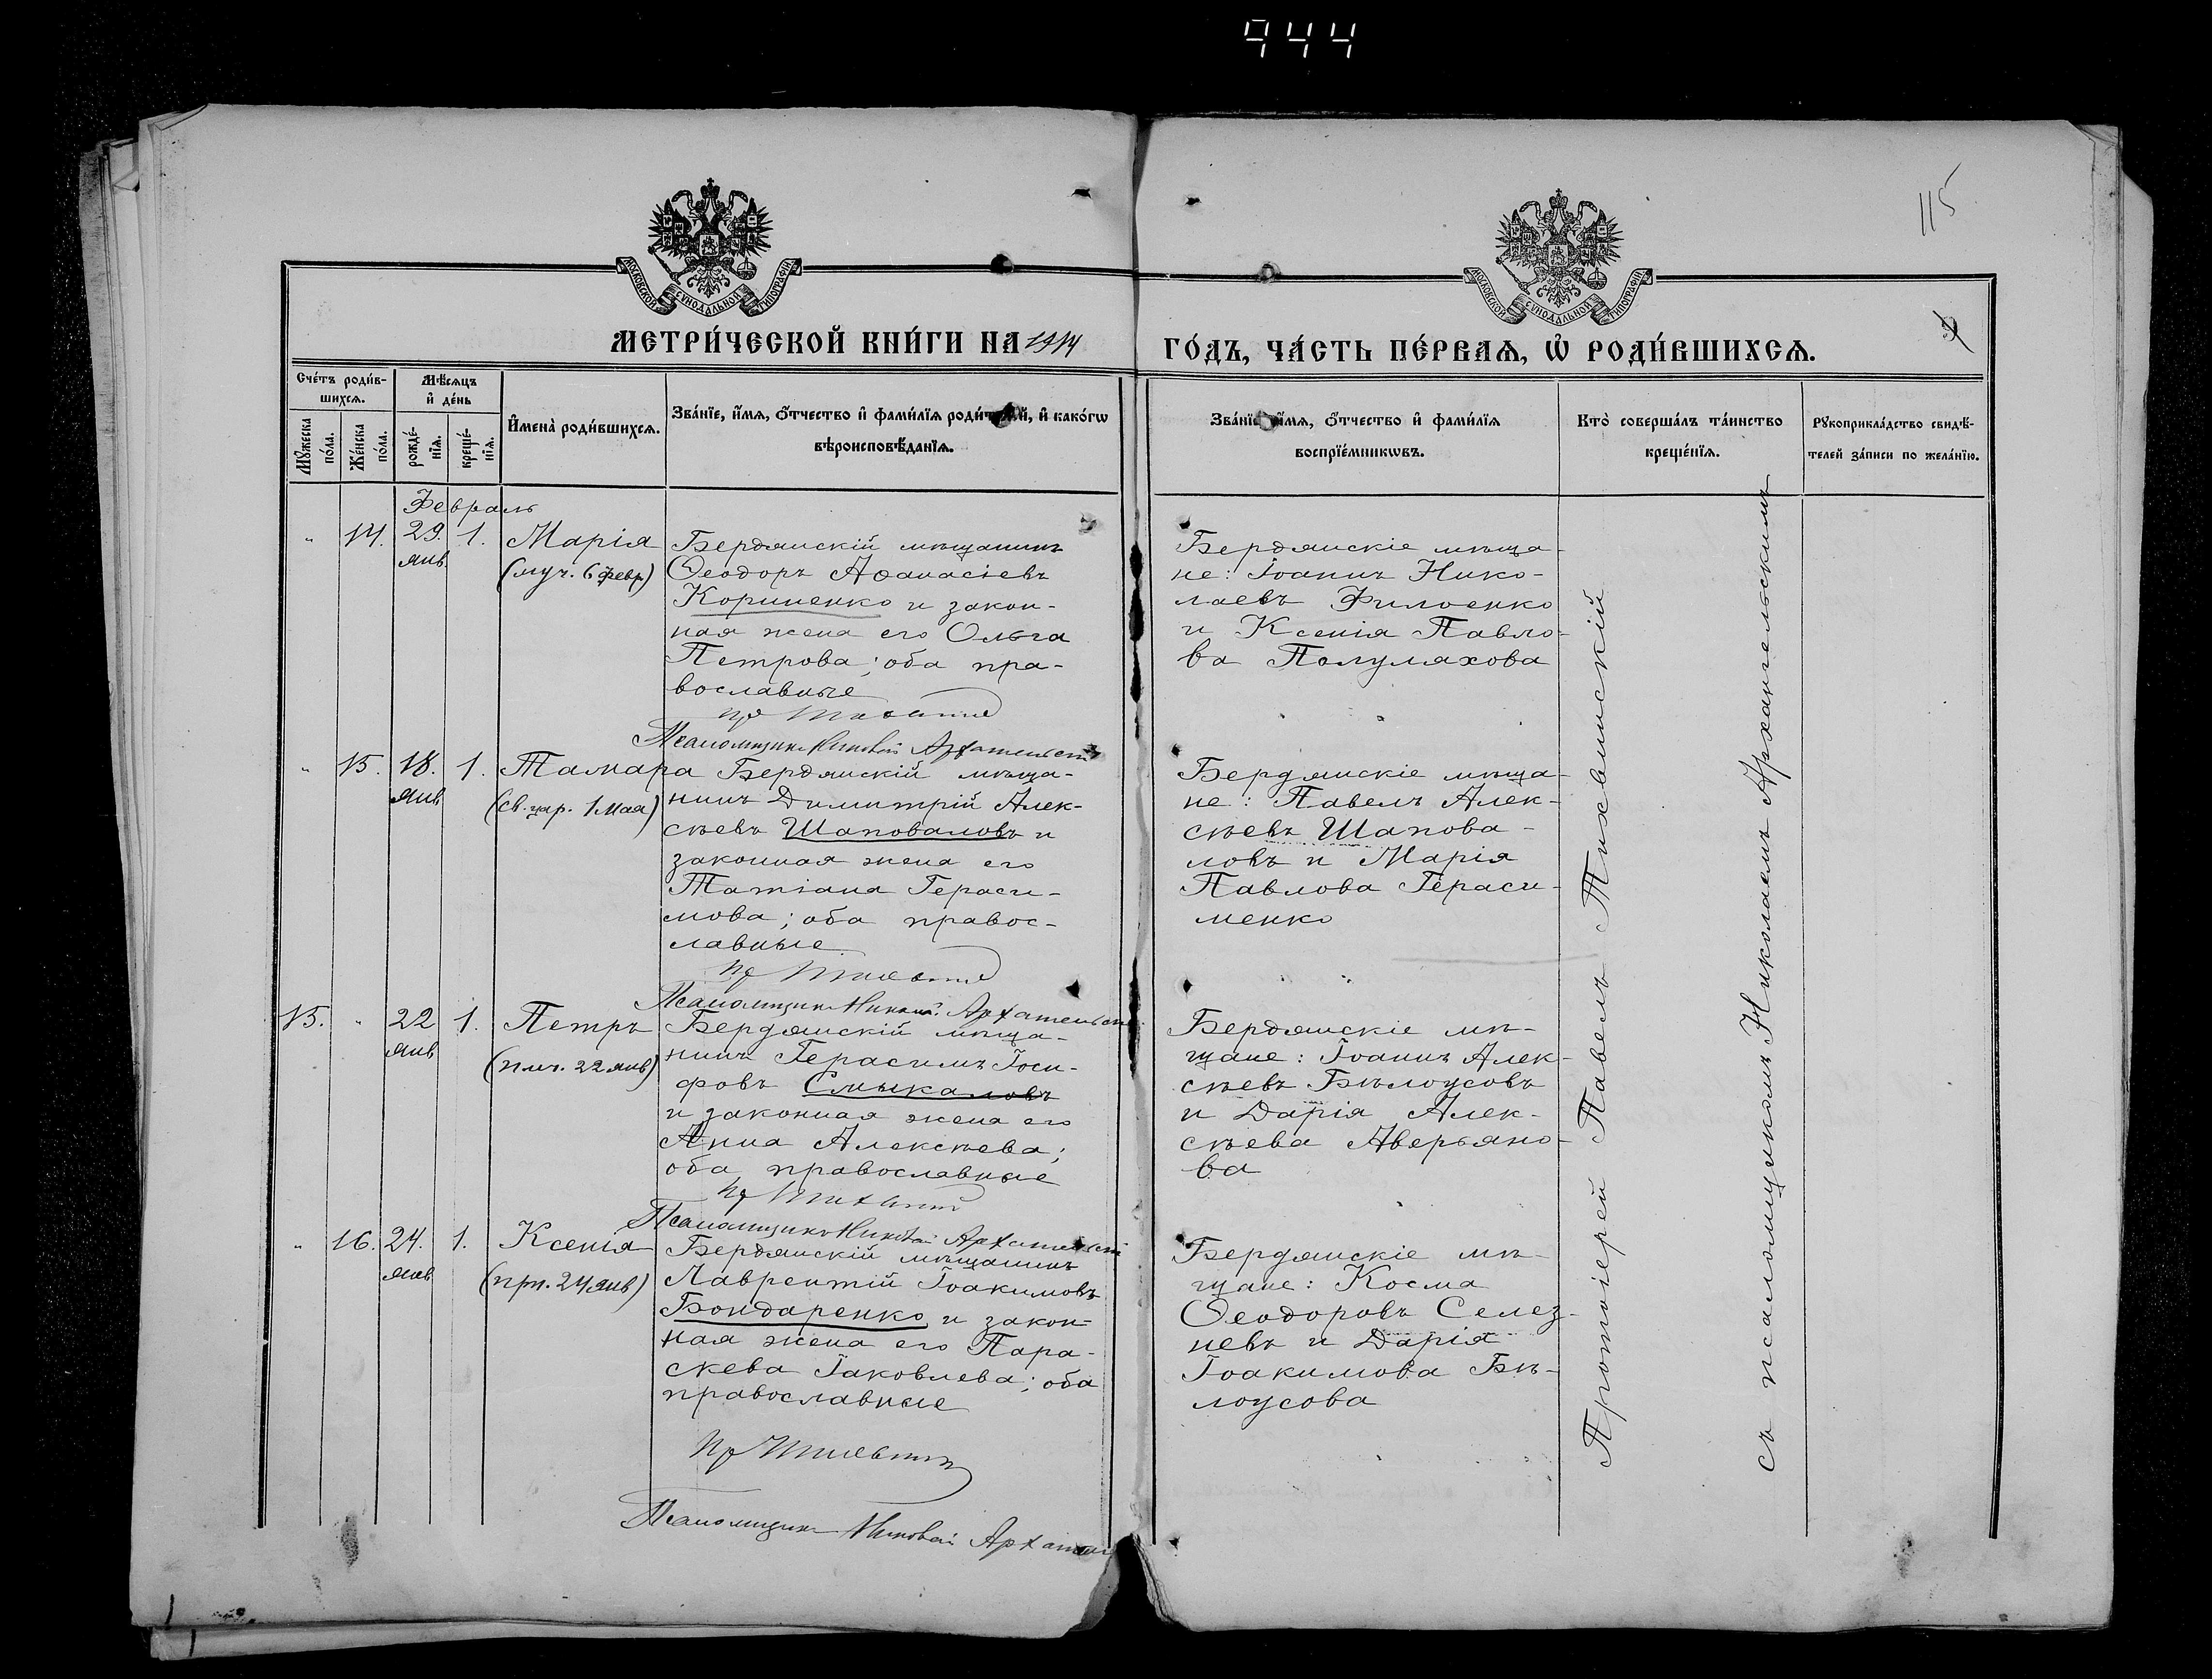 944
115
МОСКОВСКОЙ СѴНОДАЛЬНОЙ ТИПОГРАФІИ
МОСКОВСКОЙ СѴНОДАЛЬНОЙ ТИПОГРАФІИ
МЕТРИ́ЧЕСКОЙ КНИ́ГИ НА 1914
ГО́ДЪ, ЧА́СТЬ ПЕ́РВАѦ, Ѡ҆ РОДИ́ВШИХСѦ.
9
Сче́тъ роди́в-
шихсѧ.
Мꙋ́жеска
по́ла.
Же́нска
по́ла.
Мѣ́сѧцъ
и҆ де́нь
рожде́-
нїѧ.
креще́-
нїѧ.
И҆мена̀ роди́вшихсѧ.
Зва́нїе, и҆́мѧ, ѻ҆́тчество и҆ фами́лїѧ роди́телей, и҆ како́гѡ
вѣроисповѣ́данїѧ.
Зва́нїе, и҆́мѧ, ѻ҆́тчество и҆ фами́лїѧ
воспрїе́мникѡвъ.
Кто̀ соверша́лъ та́инство
креще́нїѧ.
Рꙋкоприкла́дство свидѣ́-
телей за́писи по жела́нїю.
Февраль
" 14. 29. 1. Марія
янв
(муч. 6 февр)
Бердянскій мѣщанинъ
Ѳеодоръ Аѳанасіевъ
Кориненко и закон-
ная жена его Ольга
Петрова; оба пра-
вославные
Псаломщикъ Николай Архангельскій
Бердянскіе мѣща-
не: Іоаннъ Нико-
лаевъ Филоенко
и Ксенія Павло-
ва Полуляхова
" 15. 18. 1. Тамара
янв
(св. цар. 1 Мая)
Бердянскій мѣща-
нинъ Димитрій Алек-
сѣевъ Шаповаловъ и
законная жена его
Татіана Гераси-
мова; оба правос-
лавные
Псаломщикъ Николай Архангельскій
Бердянскіе мѣща-
не: Павелъ Алек-
сѣевъ Шапова-
ловъ и Марія
Павлова Гераси-
менко
15. " 22 1. Петръ
янв
(пмч. 22 янв)
Бердянскій мѣща-
нинъ Герасимъ Іоси-
фовъ Смыкаловъ
и законная жена его
Анна Алексѣева;
оба православные
Псаломщикъ Николай Архангельскій
Бердянскіе мѣ-
щане: Іоаннъ Алек-
сѣевъ Бѣлоусовъ
и Дарія Алек-
сѣева Аверьяно-
ва
" 16. 24. 1. Ксенія
янв
(прп. 24 янв)
Бердянскій мѣщанинъ
Лаврентій Іоакимовъ
Бондаренко и закон-
ная жена его Пара-
скева Іаковлева; оба
православные
Псаломщикъ Николай Архангел
Бердянскіе мѣ-
щане: Косма
Ѳеодоровъ Селез-
невъ и Дарія
Іоакимова Бѣ-
лоусова
Протоіерей Павелъ Тихвинскій
съ псаломщикомъ Николаемъ Архангельскимъ